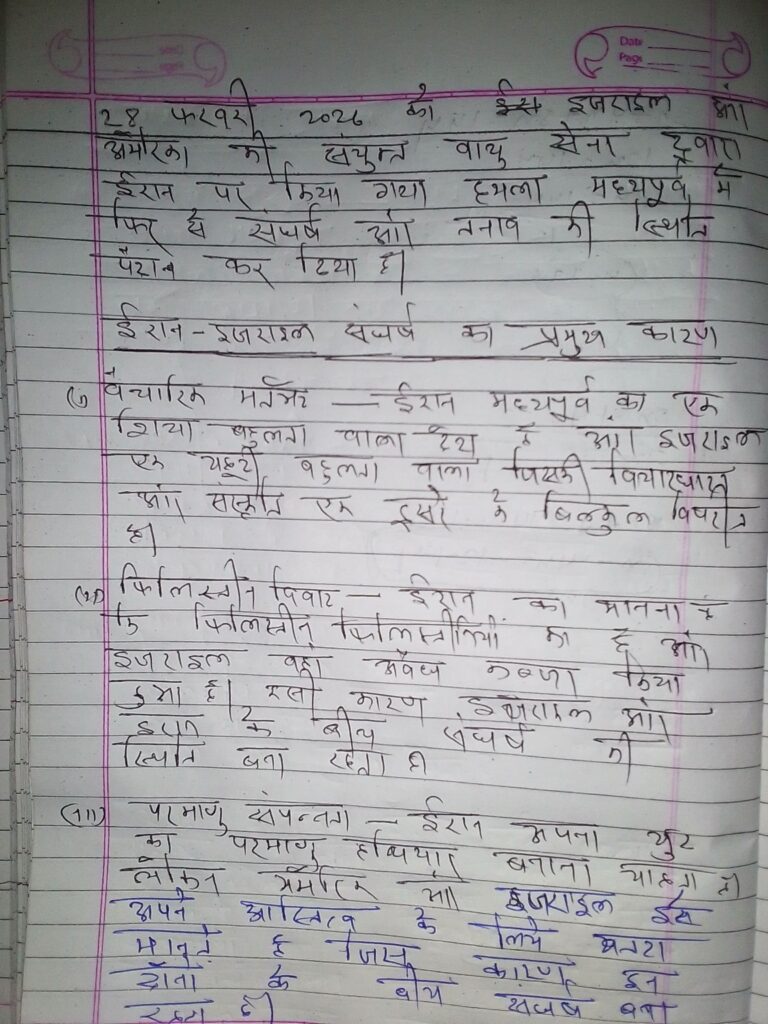 Date
Page
28 फरवरी 2026 को इजराइल और
अमेरिका की संयुक्त वायु सेना द्वारा
ईरान पर किया गया हमला मध्यपूर्व में
फिर से संघर्ष और तनाव की स्थिति
पैदा कर दिया है।
ईरान - इजराइल संघर्ष का प्रमुख कारण
(i) वैचारिक मतभेद — ईरान मध्यपूर्व का एक
शिया बहुलता वाला देश है और इजराइल
एक यहूदी बहुलता वाला जिसकी विचारधारा
और संस्कृति एक दूसरे के बिलकुल विपरीत
है।
(ii) फिलिस्तीन विवाद — ईरान का मानना है
कि फिलिस्तीन फिलिस्तीनियों का है और
इजराइल वहां अवैध कब्जा किया
हुआ है। इसी कारण इजराइल और
ईरान के बीच संघर्ष की
स्थिति बना रहता है
(iii) परमाणु संपन्नता — ईरान अपना खुद
का परमाणु हथियार बनाना चाहता है।
लेकिन अमेरिका और इजराइल इसे
अपने अस्तित्व के लिये खतरा
मानते है जिस कारण इन
दोनो के बीच संघर्ष बना
रहता है।